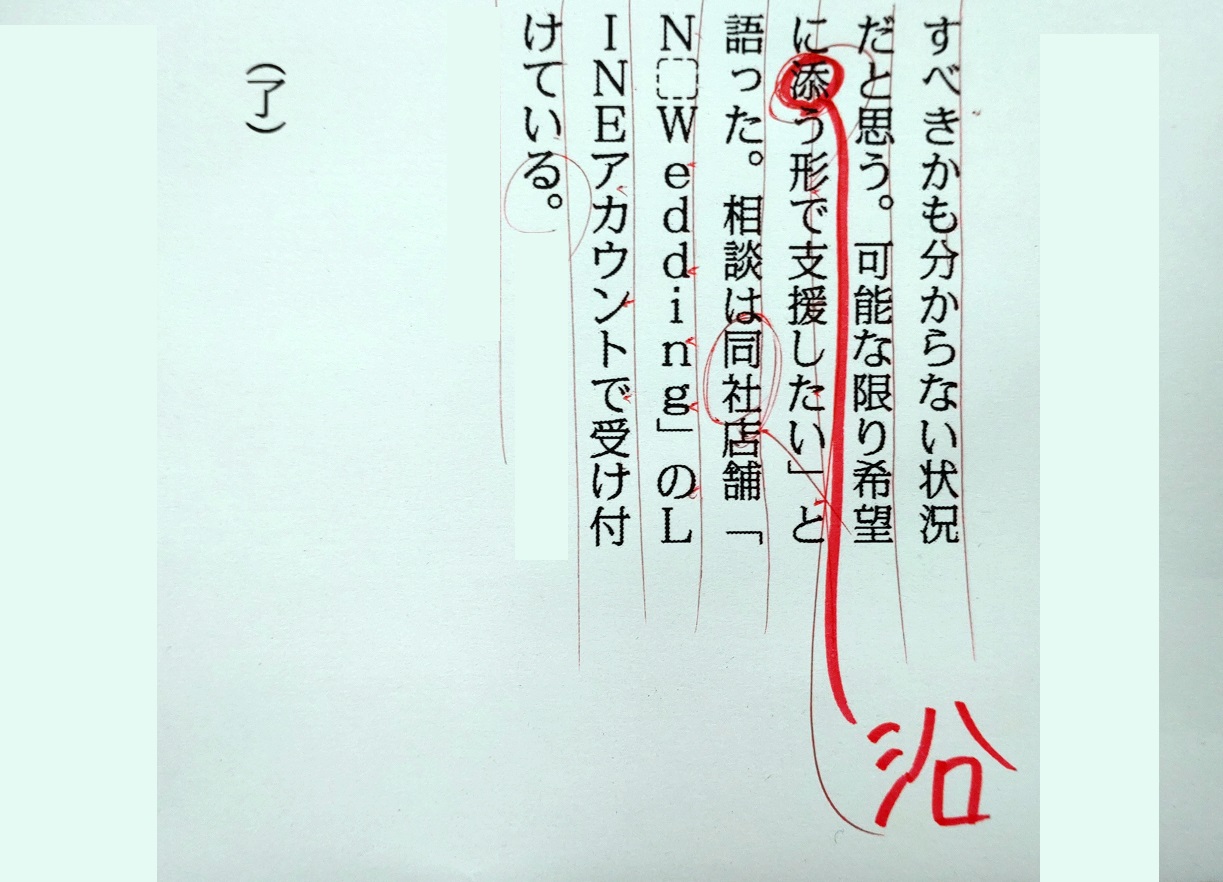 すべきかも分からない状況
だと思う。可能な限り希望
に添う形で支援したい」と
語った。相談は同社店舗「
N Wedding」のL
INEアカウントで受け付
けている。
(了)
沿